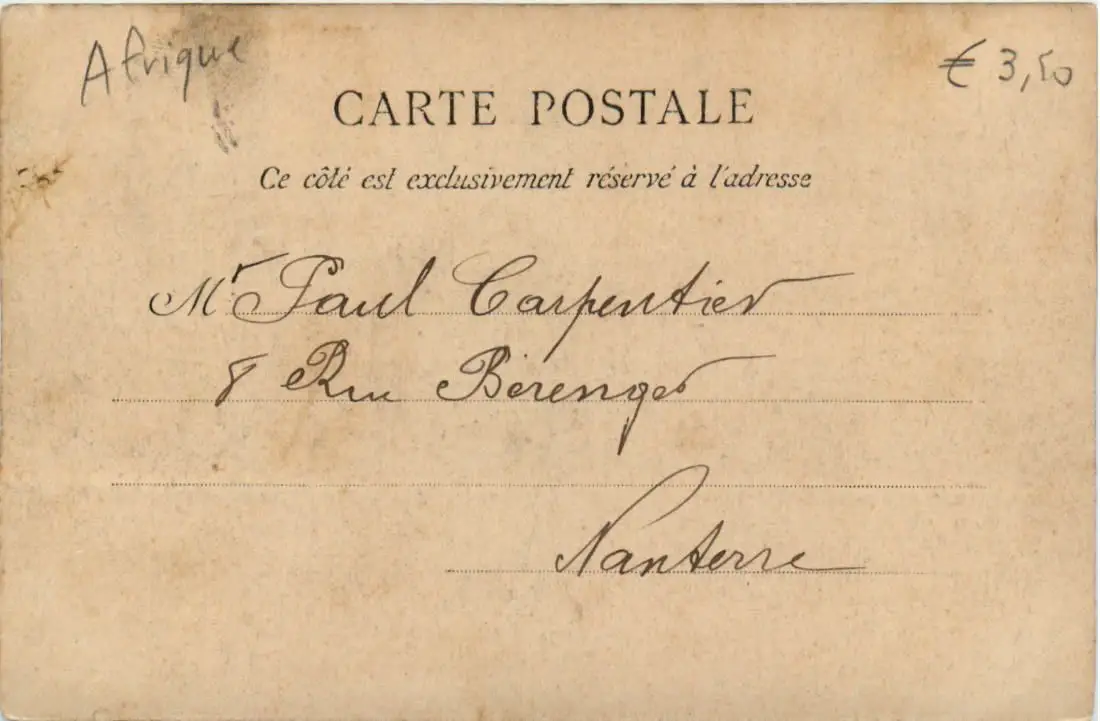 Afrique
€ 3,50
CARTE POSTALE
Ce côté est exclusivement réservé à l'adresse
Mr Paul Carpentier
8 Rue Bérenger
Nanterre